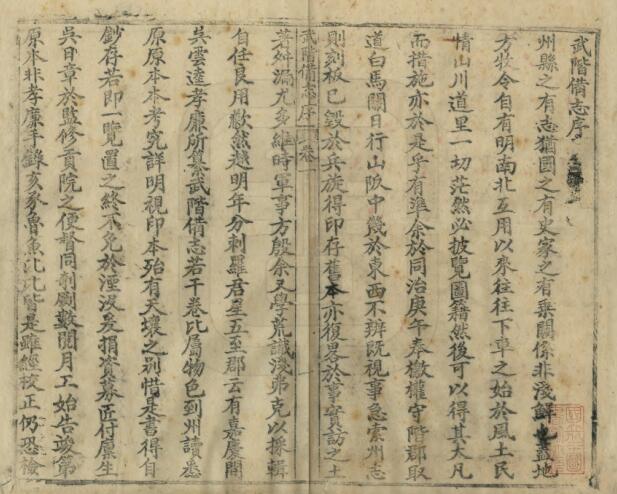 武階備志序
州縣之有志猶國之有史家之有乘關係非淺鮮也蓋地
方牧令自有明南北互用以來往往下車之始於風土民
情山川道里一切茫然必披覽圖籍然後可以得其大凡
而措施亦於是乎有準余於同治庚午奉檄權守階郡取
道白馬關日行山阪中幾於東西不辨既視事急索州志
則刻板已毀於兵旋得印存舊本亦復畧於事實訪之土
武階備志序 卷一
著舛漏尤多維時軍事方殷余又學荒識淺弗克以採輯
自任良用歉然越明年分刺羅君星五至郡云有嘉慶間
吳雲逵孝廉所纂武階備志若干卷比屬物色到州讀悉
原原本本考究詳明視印本殆有天壤之別惜是書得自
鈔存若即一覽置之終不免於湮沒爰捐資募匠付廩生
吳日章於監修貢院之便督同剞劂數閱月工始告竣第
原本非孝廉手錄亥豕魯魚比比皆是雖經校正仍恐檢